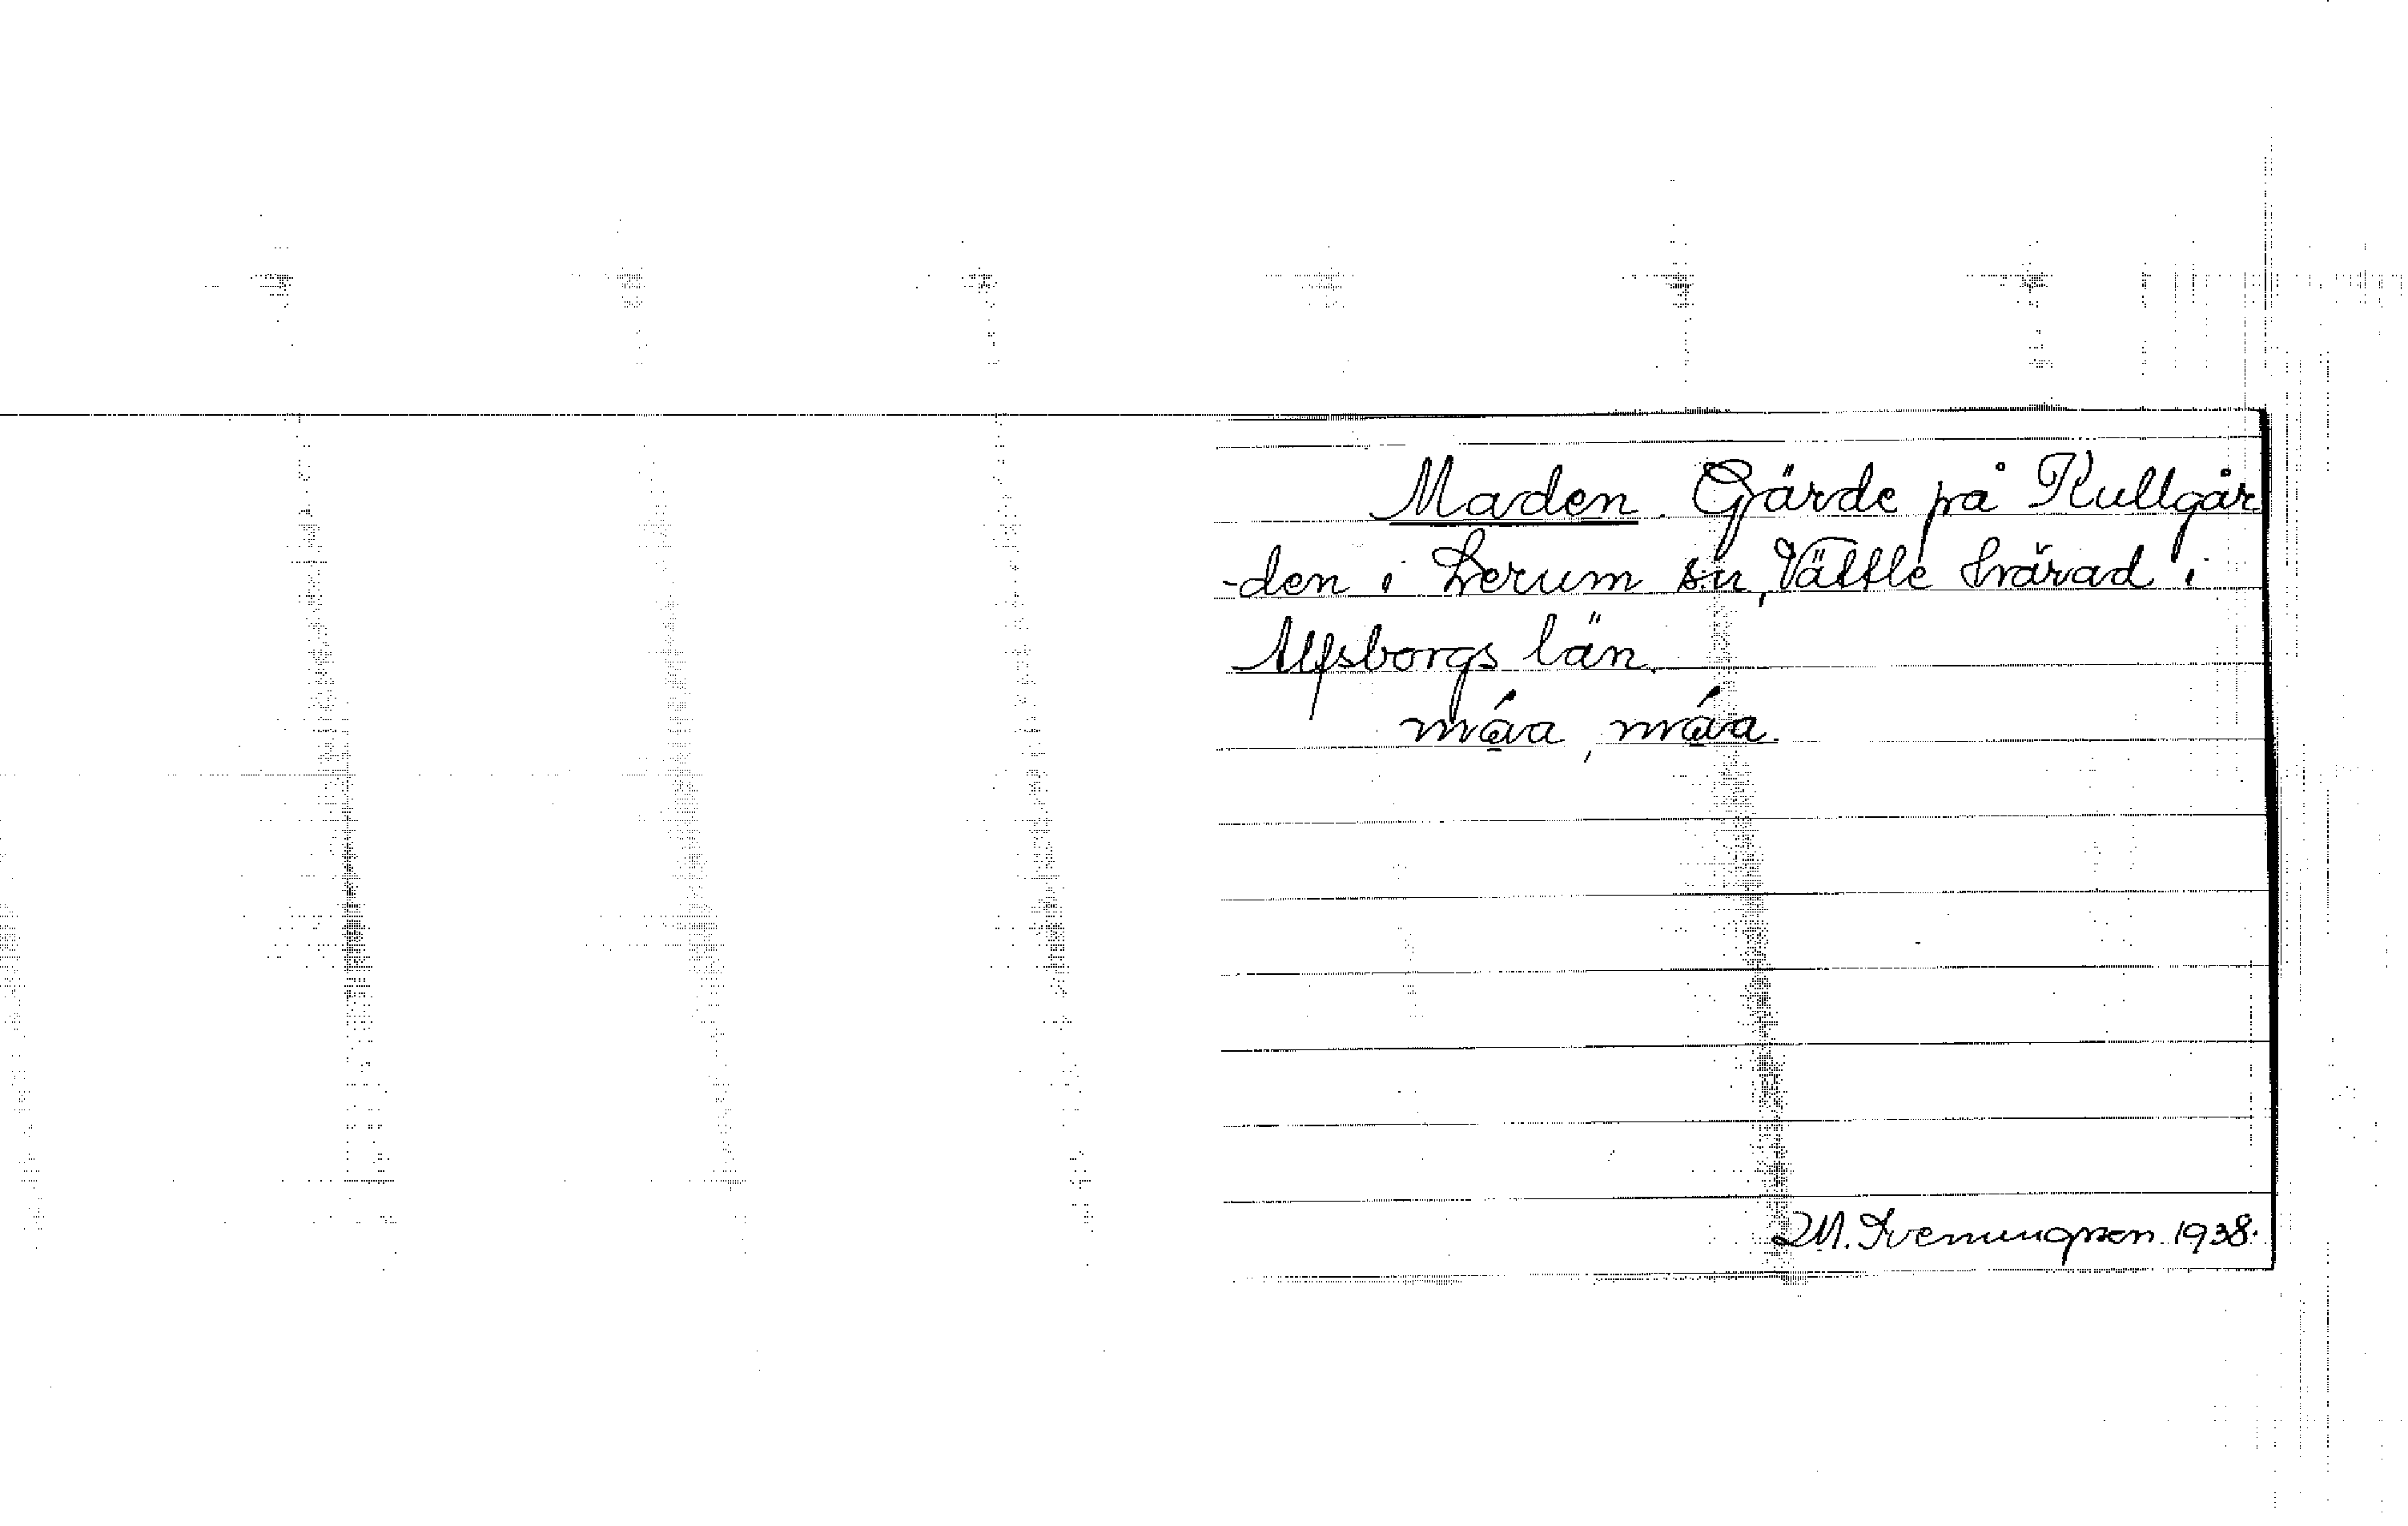 Maden. Gärde på Kullgår
-den i Lerum sn, Vättle härad i
Älfsborgs län.
máva, máva.
M. Svenungsson 1938.